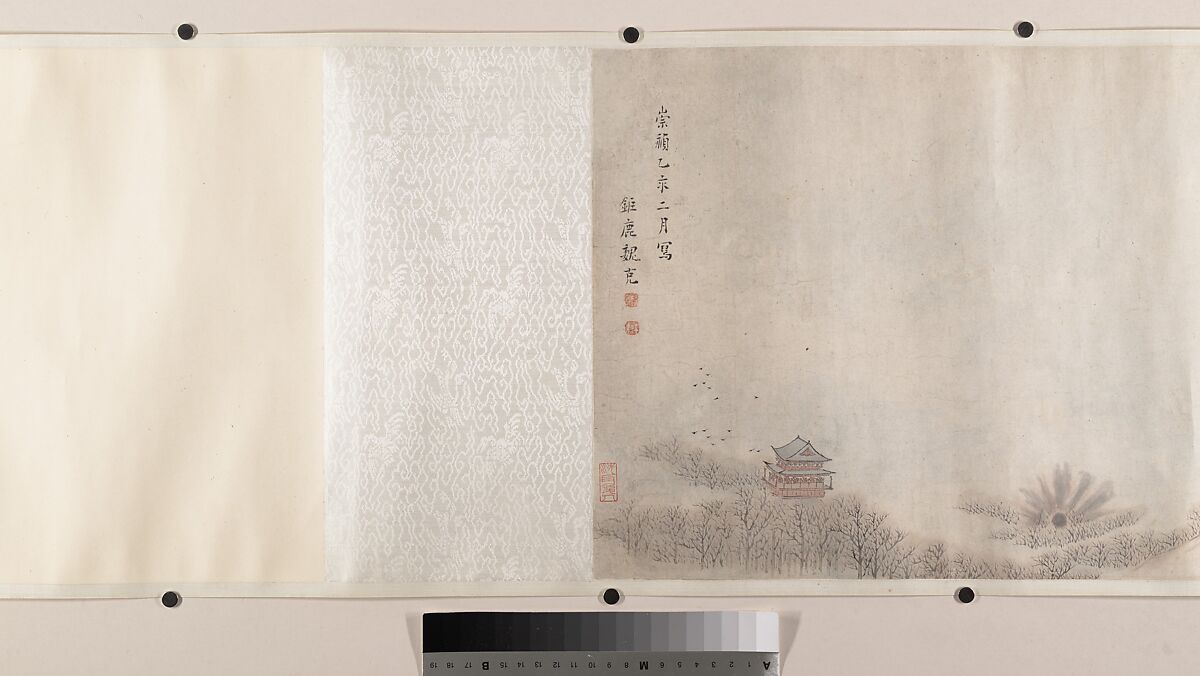 崇禎乙亥二月寫
鉅鹿魏克
19 18 17 B 15 14 13 12 11 10 9 8 M 6 5 4 3 2 1 A